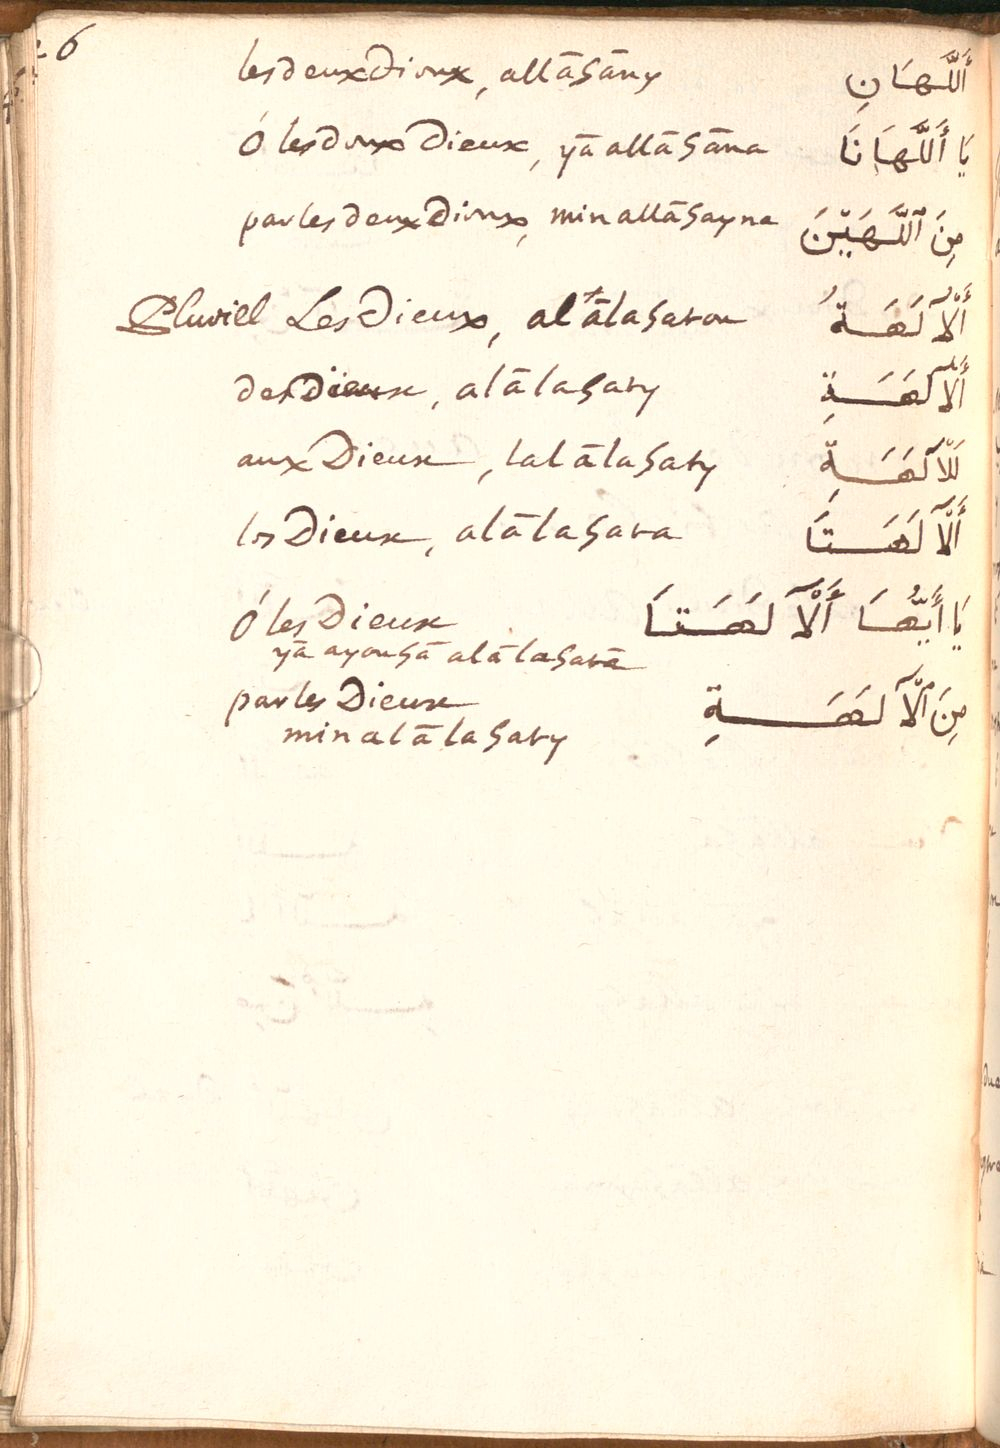 26
les deux Dieux, allāhāny أَللَّهَانِ
ó les deux Dieux, yā allāhāna يَا أَللَّهَانَا
par les deux Dieux, min allāhayna مِنَ ٱللَّهَيْنَ
Pluriel Les Dieux, alālahatou أَلْآلَهَةُ
des Dieux, alālahaty أَلآلَهَةِ
aux Dieux, lalālahaty لَلآلَهَةِ
les Dieux, alālahata أَلآلَهَتَا
ó les Dieux يَا أَيُّهَا أَلْآلَهَتَا
yā ayouhā alālahatā
par les Dieux مِنَ ٱلْآلَهَةِ
min alālahaty